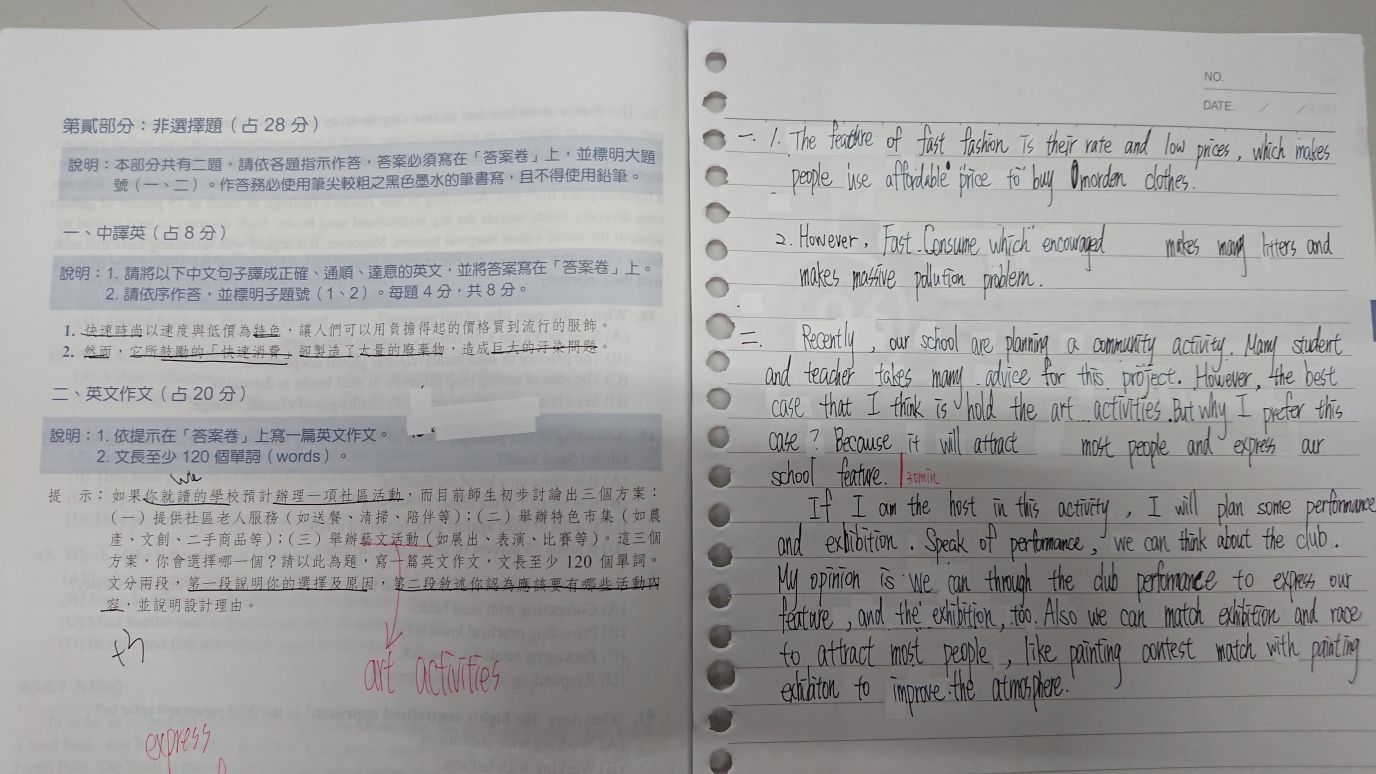 第貳部分：非選擇題（占 28 分）
說明：本部分共有二題，請依各題指示作答，答案必須寫在「答案卷」上，並標明大題
號（一、二）。作答務必使用筆尖較粗之黑色墨水的筆書寫，且不得使用鉛筆。
一、中譯英（占 8 分）
說明：1. 請將以下中文句子譯成正確、通順、達意的英文，並將答案寫在「答案卷」上。
2. 請依序作答，並標明子題號（1、2）。每題 4 分，共 8 分。
1. 快速時尚以速度與低價為特色，讓人們可以用負擔得起的價格買到流行的服飾。
2. 然而，它所鼓勵的「快速消費」卻製造了大量的廢棄物，造成巨大的汙染問題。
二、英文作文（占 20 分）
說明：1. 依提示在「答案卷」上寫一篇英文作文。
2. 文長至少 120 個單詞（words）。
we
提　示：如果你就讀的學校預計辦理一項社區活動，而目前師生初步討論出三個方案：
（一）提供社區老人服務（如送餐、清掃、陪伴等）；（二）舉辦特色市集（如農
產、文創、二手商品等）；（三）舉辦藝文活動（如展出、表演、比賽等）。這三個
方案，你會選擇哪一個？請以此為題，寫一篇英文作文，文長至少 120 個單詞。
文分兩段，第一段說明你的選擇及原因，第二段敘述你認為應該要有哪些活動內
容，並說明設計理由。
art activities
express
NO.
DATE. / /
一. 1. The feature of fast fashion is their rate and low prices, which makes
people use affordable price to buy morden clothes.
2. However, Fast Consume which encouraged makes many litters and
makes massive pollution problem.
二. Recently, our school are planning a community activity. Many student
and teacher takes many advice for this project. However, the best
case that I think is hold the art activities. But why I prefer this
case? Because it will attract most people and express our
school feature. 30min
If I am the host in this activity, I will plan some performance
and exhibition. Speak of performance, we can think about the club.
My opinion is we can through the club performance to express our
feature, and the exhibition, too. Also we can match exhibition and race
to attract most people, like painting contest match with painting
exhibiton to improve the atmosphere.